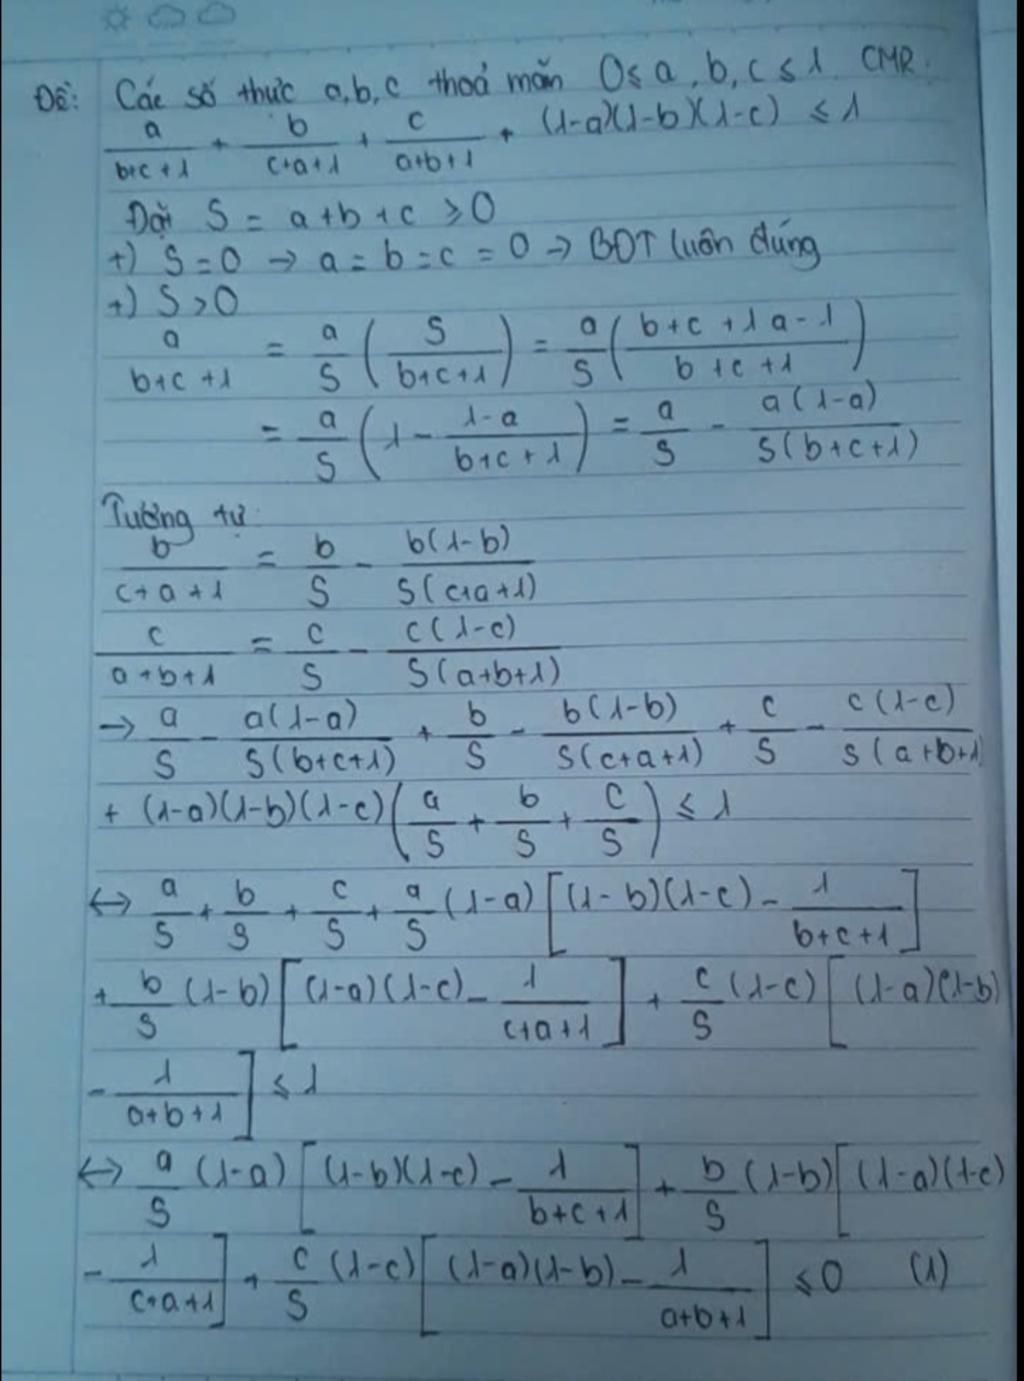 Đề: Các số thực a,b,c thoả mãn 0 ≤ a, b, c ≤ 1. CMR.
a/(b+c+1) + b/(c+a+1) + c/(a+b+1) + (1-a)(1-b)(1-c) ≤ 1
Đặt S = a+b+c ≥ 0
+) S = 0 → a = b = c = 0 → BĐT luôn đúng
+) S > 0
a/(b+c+1) = a/S (S/(b+c+1)) = a/S ((b+c+1 a-1)/(b+c+1))
= a/S (1 - (1-a)/(b+c+1)) = a/S - a(1-a)/(S(b+c+1))
Tương tự
b/(c+a+1) = b/S - b(1-b)/(S(c+a+1))
c/(a+b+1) = c/S - c(1-c)/(S(a+b+1))
→ a/S - a(1-a)/(S(b+c+1)) + b/S - b(1-b)/(S(c+a+1)) + c/S - c(1-c)/(S(a+b+1)
+ (1-a)(1-b)(1-c)(a/S + b/S + c/S) ≤ 1
↔ a/S + b/S + c/S + a/S (1-a)[(1-b)(1-c) - 1/(b+c+1)]
+ b/S (1-b)[(1-a)(1-c) - 1/(c+a+1)] + c/S (1-c)[(1-a)(1-b)
- 1/(a+b+1)] ≤ 1
↔ a/S (1-a)[(1-b)(1-c) - 1/(b+c+1)] + b/S (1-b)[(1-a)(1-c)
- 1/(c+a+1)] + c/S (1-c)[(1-a)(1-b) - 1/(a+b+1)] ≤ 0 (1)